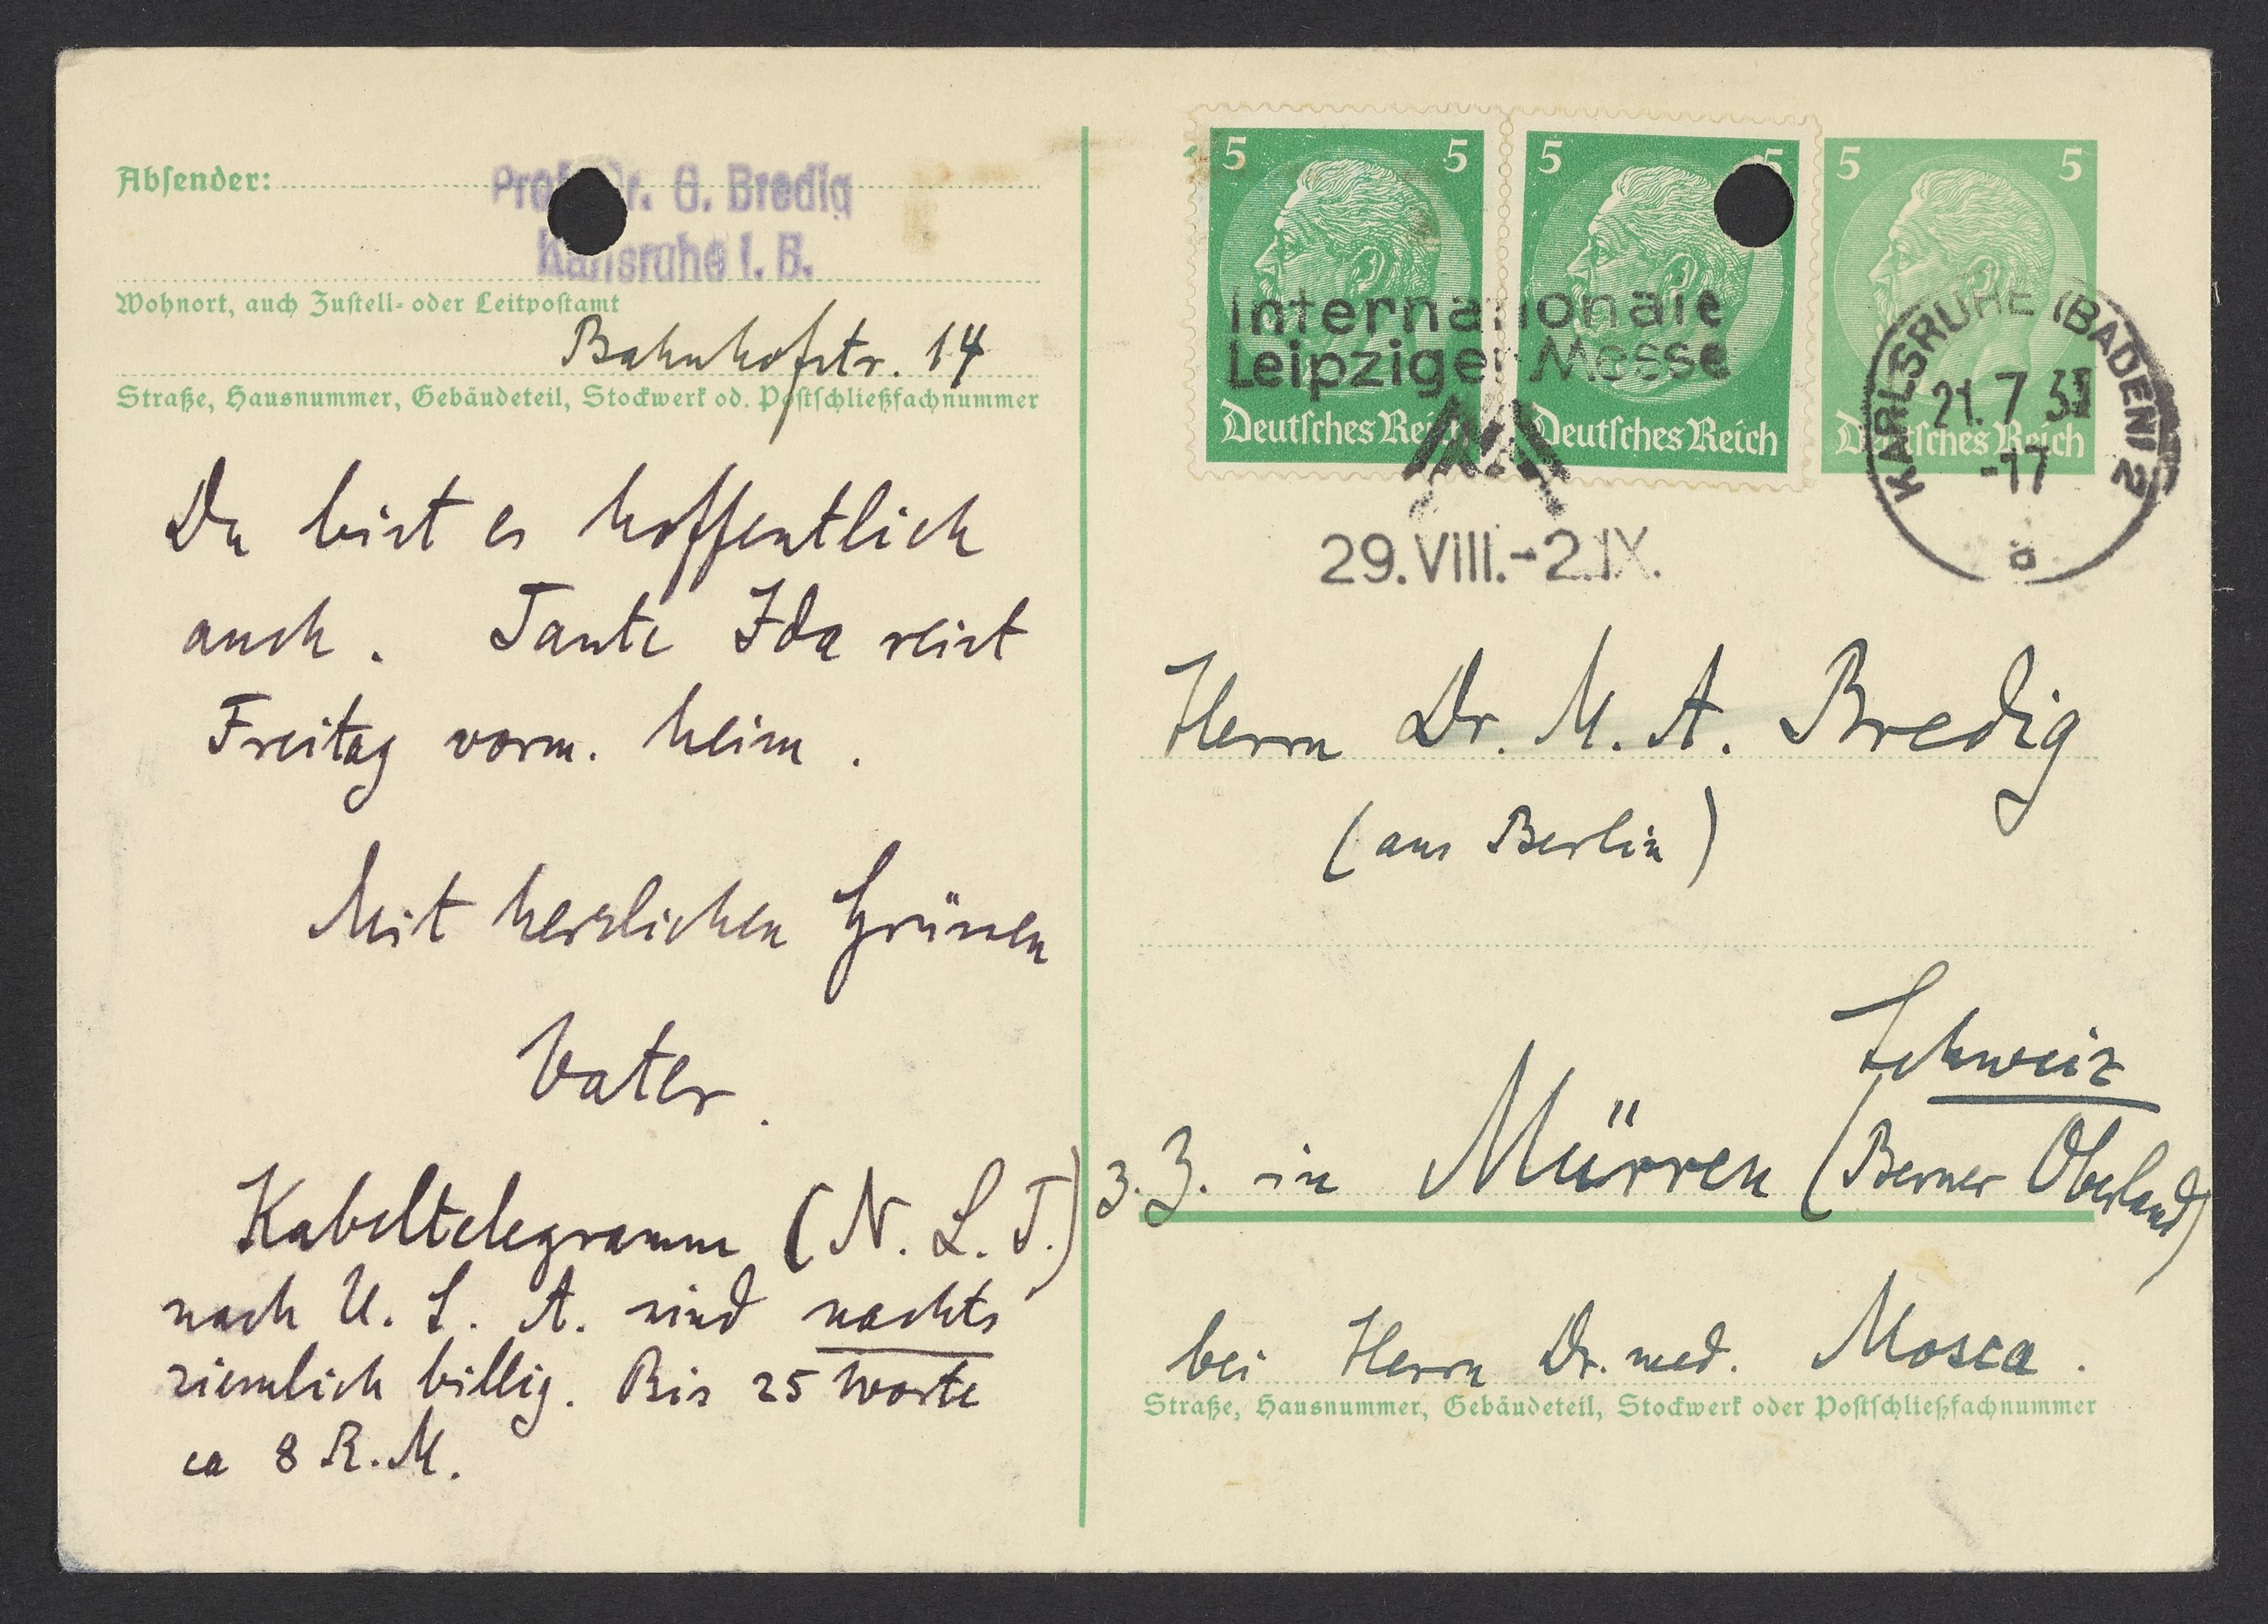 Absender:
Prof. Dr. G. Bredig
Karlsruhe i. B.
Wohnort, auch Zustell- oder Leitpostamt
Bahnhofstr. 14
Straße, Hausnummer, Gebäudeteil, Stockwerk od. Postschließfachnummer
Du bist es hoffentlich
auch. Tante Ida reist
Freitag vorm. heim.
Mit herzlichen Grüssen
Vater.
Kabeltelegramme (N. L. T.)
nach U. S. A. sind nachts
ziemlich billig. Bis 25 Worte
ca 8 R. M.
5 5 5 5 5 5
Deutsches Reich Deutsches Reich Deutsches Reich
Internationale
Leipziger Messe
29. VIII.-2. IX.
KARLSRUHE (BADEN) 2
21. 7
-17
a
Herrn Dr. M. A. Bredig
(aus Berlin)
Schweiz
z. Z. in Mürren (Berner Oberland)
bei Herrn Dr. med. Mosca.
Straße, Hausnummer, Gebäudeteil, Stockwerk oder Postschließfachnummer